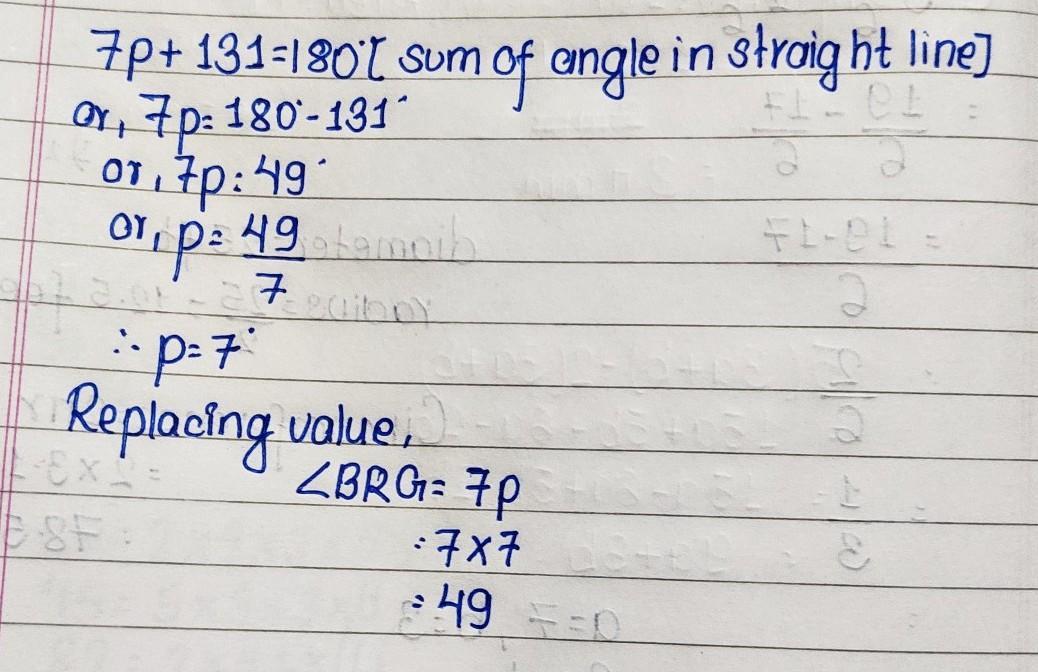 7p+ 131=180°[ sum of angle in straight line]
or, 7p= 180°-131°
or, 7p= 49°
or, p= 49/7
∴ p= 7°
Replacing value,
∠BRG= 7p
=7×7
=49